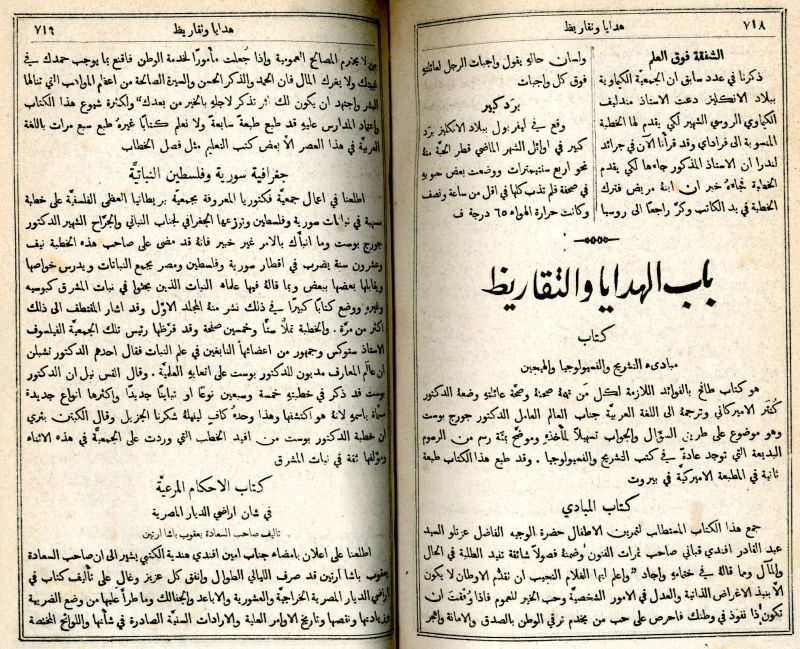 ٧١٨
هدايا وتقاريظ
الشفقة فوق العلم
ذكرنا في عدد سابق ان الجمعية الكياوية
ببلاد الانكليز دعت الاستاذ مندليف
الكياوي الروسي الشهير لكي يقدم لها الخطبة
المنسوبة الى فراداي وقد قرأنا الآن في جرائد
لندرا ان الاستاذ المذكور جاءها لكي يقدم
الخطبة فجاءهُ خبر ان ابنهُ مريض فترك
الخطبة في يد الكاتب وكرَّ راجعًا الى روسيا
ولسان حالهِ يقول واجبات الرجل لعائلتهِ
فوق كل واجبات
برَد كبير
وقع في ليفربول ببلاد الانكليز برَد
كبير في اوائل الشهر الماضي قطر الحبَّة منهُ
نحو اربع سنتيمترات ووضعت بعض حبوبهِ
في صحفة فلم تذب كلها في اقل من ساعة ونصف
وكانت حرارة الهواء ٦٥ درجة ف
باب الهدايا والتقاريظ
كتاب
مبادىء التشريح والفسيولوجيا والهيجين
هو كتاب طافح بالفوائد اللازمة لكل من تهمهُ صحتهُ وصحَّة عائلتهِ وضعهُ الدكتور
كُتَر الاميركاني وترجمهُ الى اللغة العربيَّة جناب العالم العامل الدكتور جورج بوست
وهو موضوع على طريق السؤال والجواب تسهيلاً لمأخذهِ وموضَّح بمئة رسم من الرسوم
البديعة التي توجد عادةً في كتب التشريح والفسيولوجيا . وقد طبع هذا الكتاب طبعة
ثانية في المطبعة الاميركيَّة في بيروت
كتاب المبادي
جمع هذا الكتاب المستطاب لتمرين الاطفال حضرة الوجيه الفاضل عزتلو السيد
عبد القادر افندي قباني صاحب ثمرات الفنون وضمنهُ فصولاً شائقة تفيد الطلبة في الحال
والمآل وما قالهُ في ختامهِ واجاد "واعلم ايها الغلام النجيب ان تقدُّم الاوطان لا يكون
الاَّ بنبذ الاغراض الذاتية والعدل في الامور الشخصيَّة وحب الخير للعموم فاذا وُفقت ان
تكون ذا نفوذ في وطنك فاحرص على حب من يخدم ترقي الوطن بالصدق والامانة واهجر
هدايا وتقاريظ
٧١٩
من لا يحترم المصالح العمومية واذا جُعلت مأمورًا لخدمة الوطن فاقنع بما يوجب حمدك في
غيبتك ولا يغرك المال فان الحمد والذكر الحسن والسيرة الصالحة من اعظم المواهب التي تنالها
البشر واجتهد ان يكون لك اثر تذكر لاجلهِ بالخير من بعدك" ولكثرة شيوع هذا الكتاب
واعتماد المدارس عليهِ قد طبع طبعة سابعة ولا نعلم كتابًا غيرهُ طبع سبع مرات باللغة
العربيَّة في هذا العصر الاَّ بعض كتب التعليم مثل فصل الخطاب
جغرافية سورية وفلسطين النباتيَّة
اطلعنا في اعمال جمعيَّة فكتوريا المعروفة بجمعية بريطانيا العظمى الفلسفيَّة على خطبة
مسهبة في نباتات سورية وفلسطين وتوزعها الجغرافي لجناب النباتي والجرَّاح الشهير الدكتور
جورج بوست وما انبأك بالامر غير خبير فانهُ قد مضى على صاحب هذه الخطبة نيف
وعشرون سنة يضرب في اقطار سورية وفلسطين ومصر يجمع النباتات ويدرس خواصها
ويقابلها بعضها ببعض وبما قالهُ فيها علماء النبات الذين بحثوا في نبات المشرق كبوسيه
وغيرهِ ووضع كتابًا كبيرًا في ذلك نشر منهُ المجلد الاوَّل وقد اشار المقتطف الى ذلك
اكثر من مرَّة . والخطبة تملأ ستًّا وخمسين صفحة وقد قرَّظها رئيس تلك الجمعيَّة الفيلسوف
الاستاذ ستوكس وجمهور من اعضائها النابغين في علم النبات فقال احدهم الدكتور تشبلن
ان عالم المعارف مديون للدكتور بوست على اتعابهِ العلميَّة . وقال القس نيل ان الدكتور
بوست قد ذكر في خطبتهِ خمسة وسبعين نوعًا او تباينًا جديدًا واكثرها انواع جديدة
مسماة باسمهِ لانهُ هو اكتشفها وهذا وحدهُ كافٍ لينهلهُ شكرنا الجزيل وقال الكبتن بتري
ان خطبة الدكتور بوست من افيد الخطب التي وردت على الجمعيَّة في هذه الاثناء
ومؤلفها ثقة في نبات المشرق
كتاب الاحكام المرعيَّة
في شان اراضي الديار المصرية
تاليف صاحب السعادة يعقوب باشا ارتين
اطلعنا على اعلان بامضاء جناب امين افندي هندية الكتبي يشير الى ان صاحب السعادة
يعقوب باشا ارتين قد صرف الليالي الطوال وانفق كل عزيز وغالٍ على تأليف كتاب في
اراضي الديار المصرية الخراجيَّة والعشورية والاباعد والجفالك وما طرأ عليها من وضع الضريبة
وزيادتها ونقصها وتاريخ الاوامر العلية والارادات السنيَّة الصادرة في شأنها واللوائح المختصة